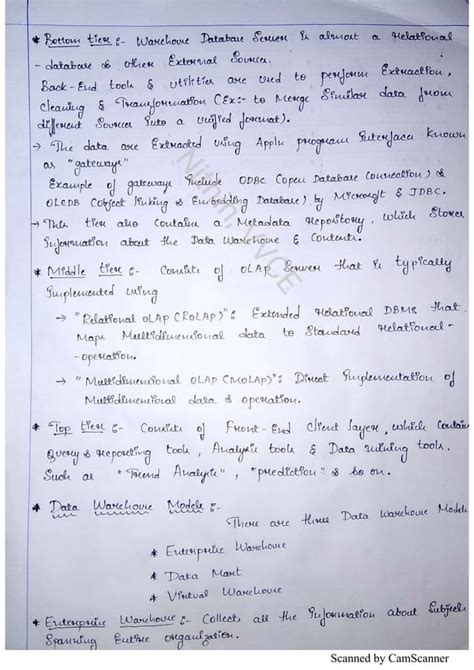 * Bottom tier :- Warehouse Database Server is almost a relational
- database & other External Sources.
Back-End tools & utilities are used to perform Extraction,
Cleaning & Transformation (Ex:- to Merge Similar data from
different Sources into a unified format).
→ The data are Extracted using Appln program Interfaces known
as "gateways"
Example of gateways include ODBC (open Database Connection) &
OLEDB (object linking & Embedding Database) by Microsoft & JDBC.
→ This tier also Contains a Metadata repository, which Stores
Information about the Data Warehouse & Contents.
* Middle tier :- Consists of OLAP Server that is typically
Implemented using
→ "Relational OLAP (ROLAP)": Extended Relational DBMS that
Maps Multidimensional data to Standard Relational-
-operation.
→ "Multidimensional OLAP (MOLAP)": Direct Implementation of
Multidimensional data & operation.
* Top tier :- Consists of Front-End Client layer, which contain
Query & reporting tools, Analysis tools & Data mining tools.
Such as "Trend Analysis", "prediction" & so on.
* Data Warehouse Models :-
There are three Data Warehouse Models
* Enterprise Warehouse
* Data Mart
* Virtual Warehouse
* Enterprise Warehouse :- Collects all the Information about Subjects
Spanning Entire organization.
Scanned by CamScanner